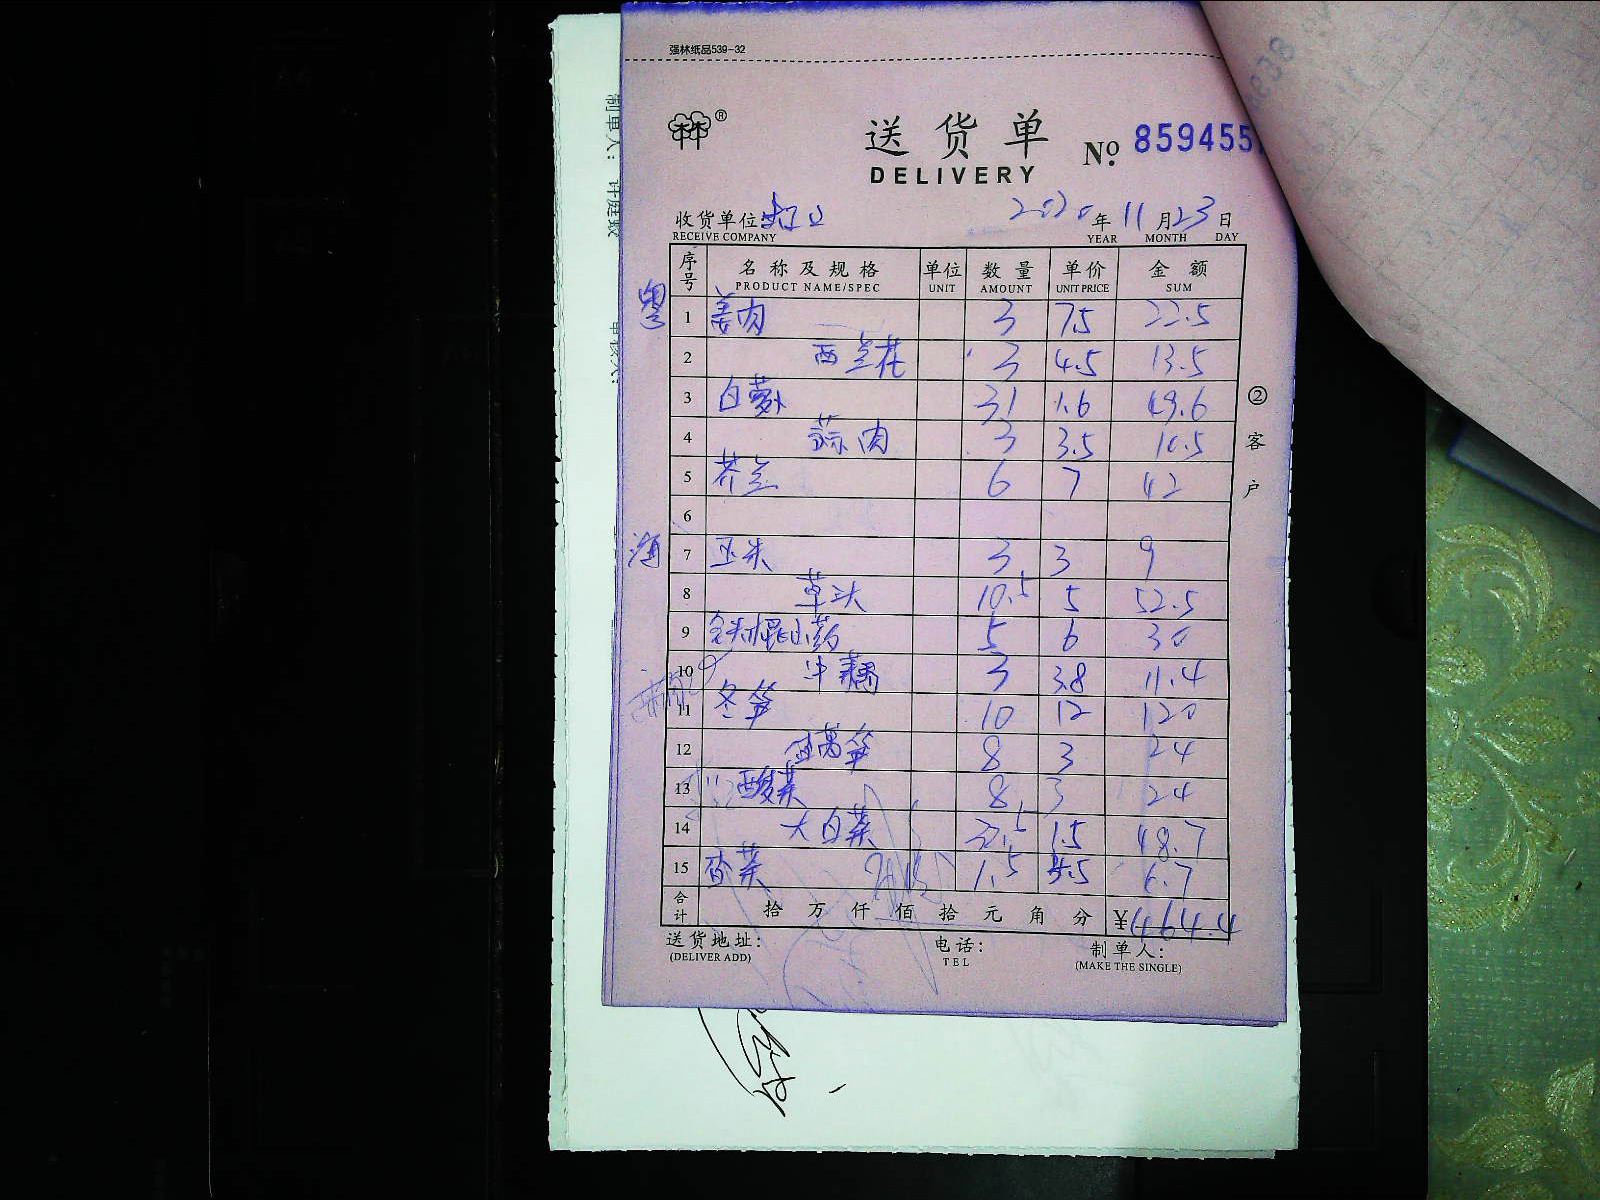 强林纸品539-32
送货单 № 859455
DELIVERY
收货单位 2020年11月23日
RECEIVE COMPANY YEAR MONTH DAY
序号 名称及规格 单位 数量 单价 金额
PRODUCT NAME/SPEC UNIT AMOUNT UNIT PRICE SUM
粤 1 姜肉 3 7.5 22.5
2 西兰花 3 4.5 13.5
3 白萝卜 31 1.6 49.6
4 蒜肉 3 3.5 10.5
5 芥兰 6 7 42
6
7 玉米 3 3 9
8 草头 10.5 5 52.5
9 铁棍山药 5 6 30
10 中藕 3 3.8 11.4
11 冬笋 10 12 120
12 莴笋 8 3 24
13 酸菜 8 3 24
14 大白菜 32.5 1.5 48.7
15 香菜 1.5 4.5 6.7
合计 拾万仟佰拾元角分 ¥464.4
送货地址： 电话： 制单人：
(DELIVER ADD) TEL (MAKE THE SINGLE)
②客户
制单人：许庭
审核人：